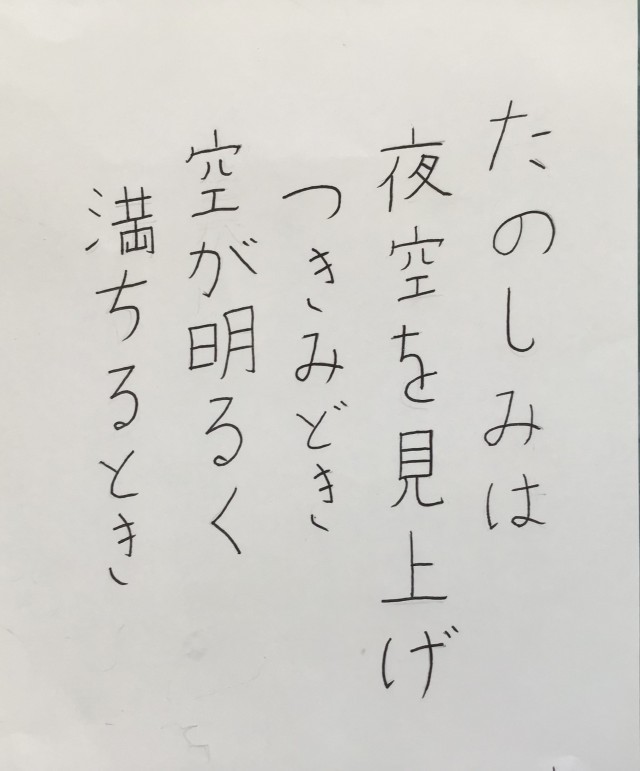 たのしみは
夜空を見上げ
つきみどき
空が明るく
満ちるとき